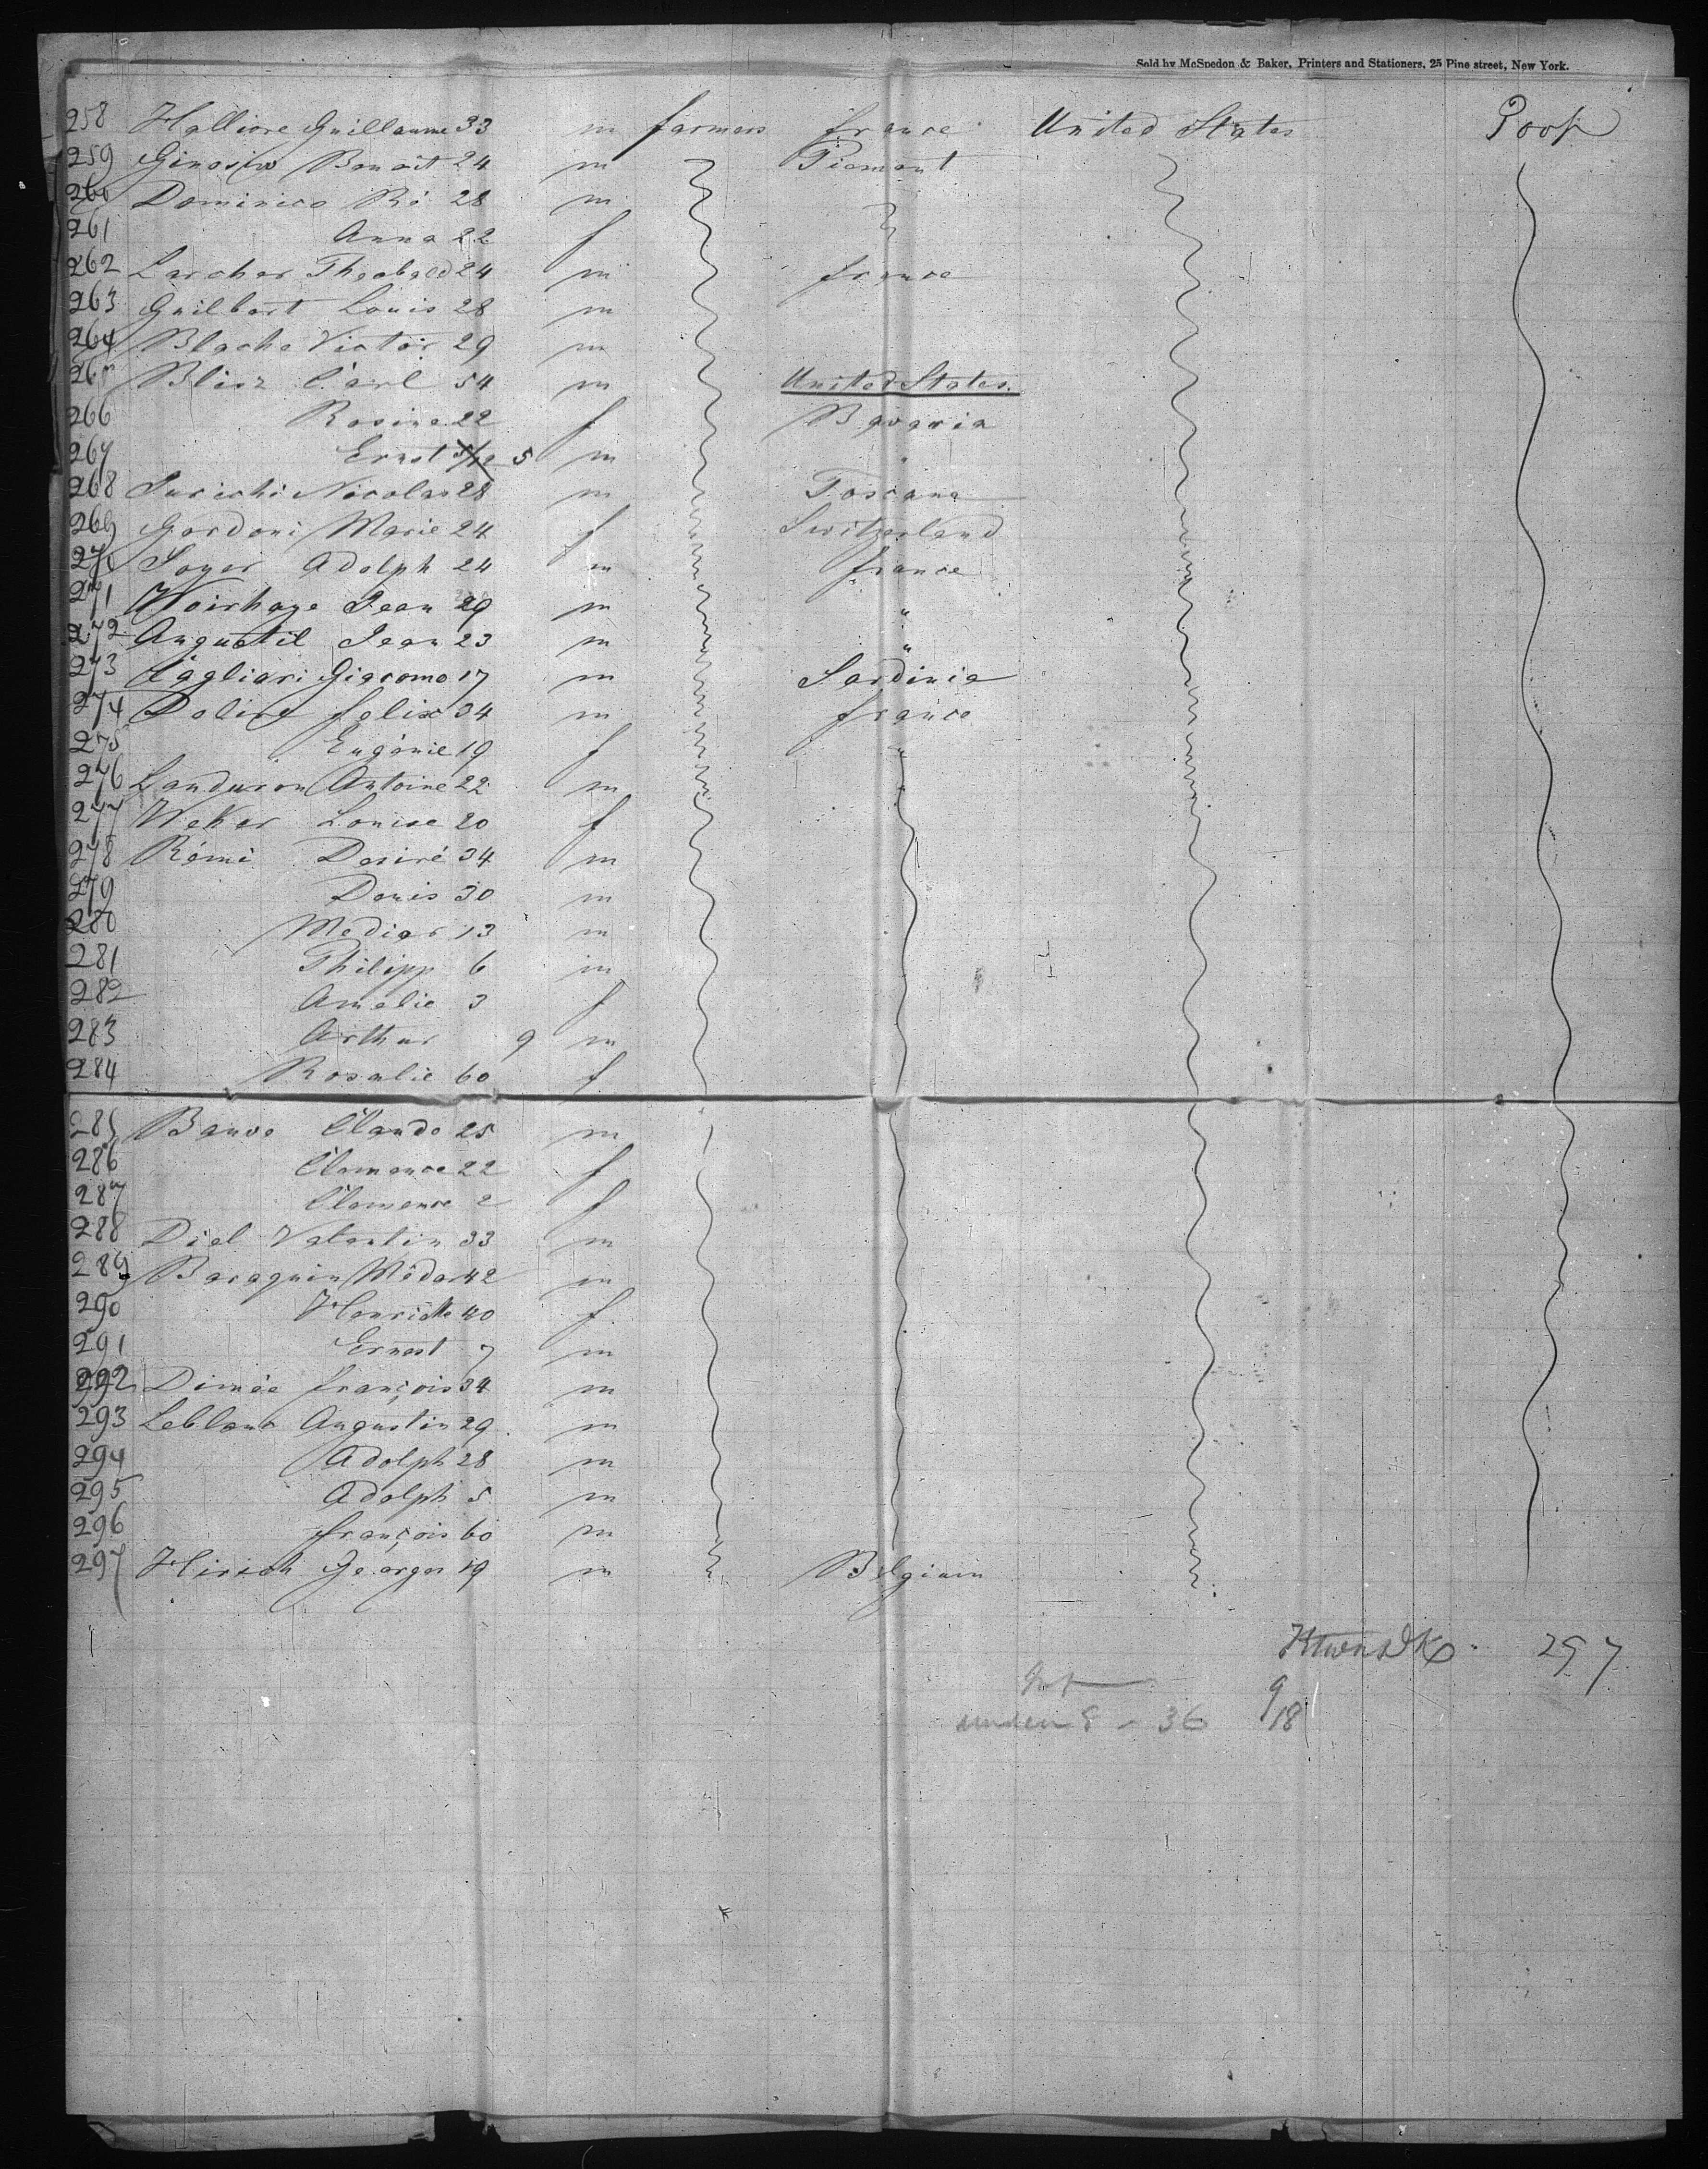 Sold by McSpedon & Baker, Printers and Stationers, 25 Pine street, New York.
258 Halliore Guillaume 33 m farmers france United States Poop
259 Benoit 24 m Piemont
260 Dominico Ré 28 m
261 Anna 22 f
262 Larcher Theobald 24 m france
263 Guilbert Louis 28 m
264 Blache Victor 29 m
265 Blisz Carl 54 m United States.
266 Rosine 22 f Bavaria
267 Ernst 5/12 5 m "
268 Nicolas 28 m Toscana
269 Gordoni Marie 24 f Switzerland
270 Soyer Adolph 24 m france
271 Woirhaye Jean 29 m "
272 Angustil Jean 23 m "
273 Cagliari Giacomo 17 m Sardinia
274 Felix 34 m france
275 Eugénie 19 f "
276 Landuron Antoine 22 m
277 Weker Louise 20 f
278 Rémi Desiré 34 m
279 Denis 30 m
280 Medier 13 m
281 Philipp 6 m
282 Amelie 3 f
283 Arthur 9 m
284 Rosalie 60 f
285 Bauve Claude 25 m
286 Clemence 22 f
287 Clemence 2 f
288 Diel Valentin 33 m
289 Baraquin Médar 42 m
290 Henriette 40 f
291 Ernest 7 m
292 Dimée françois 34 m
293 Leblanc Augustin 29 m
294 Adolph 28 m
295 Adolph 5 m
296 françois 60 m
297 Hirsch Georges 19 m Belgium
297
9
under 8 - 36 18